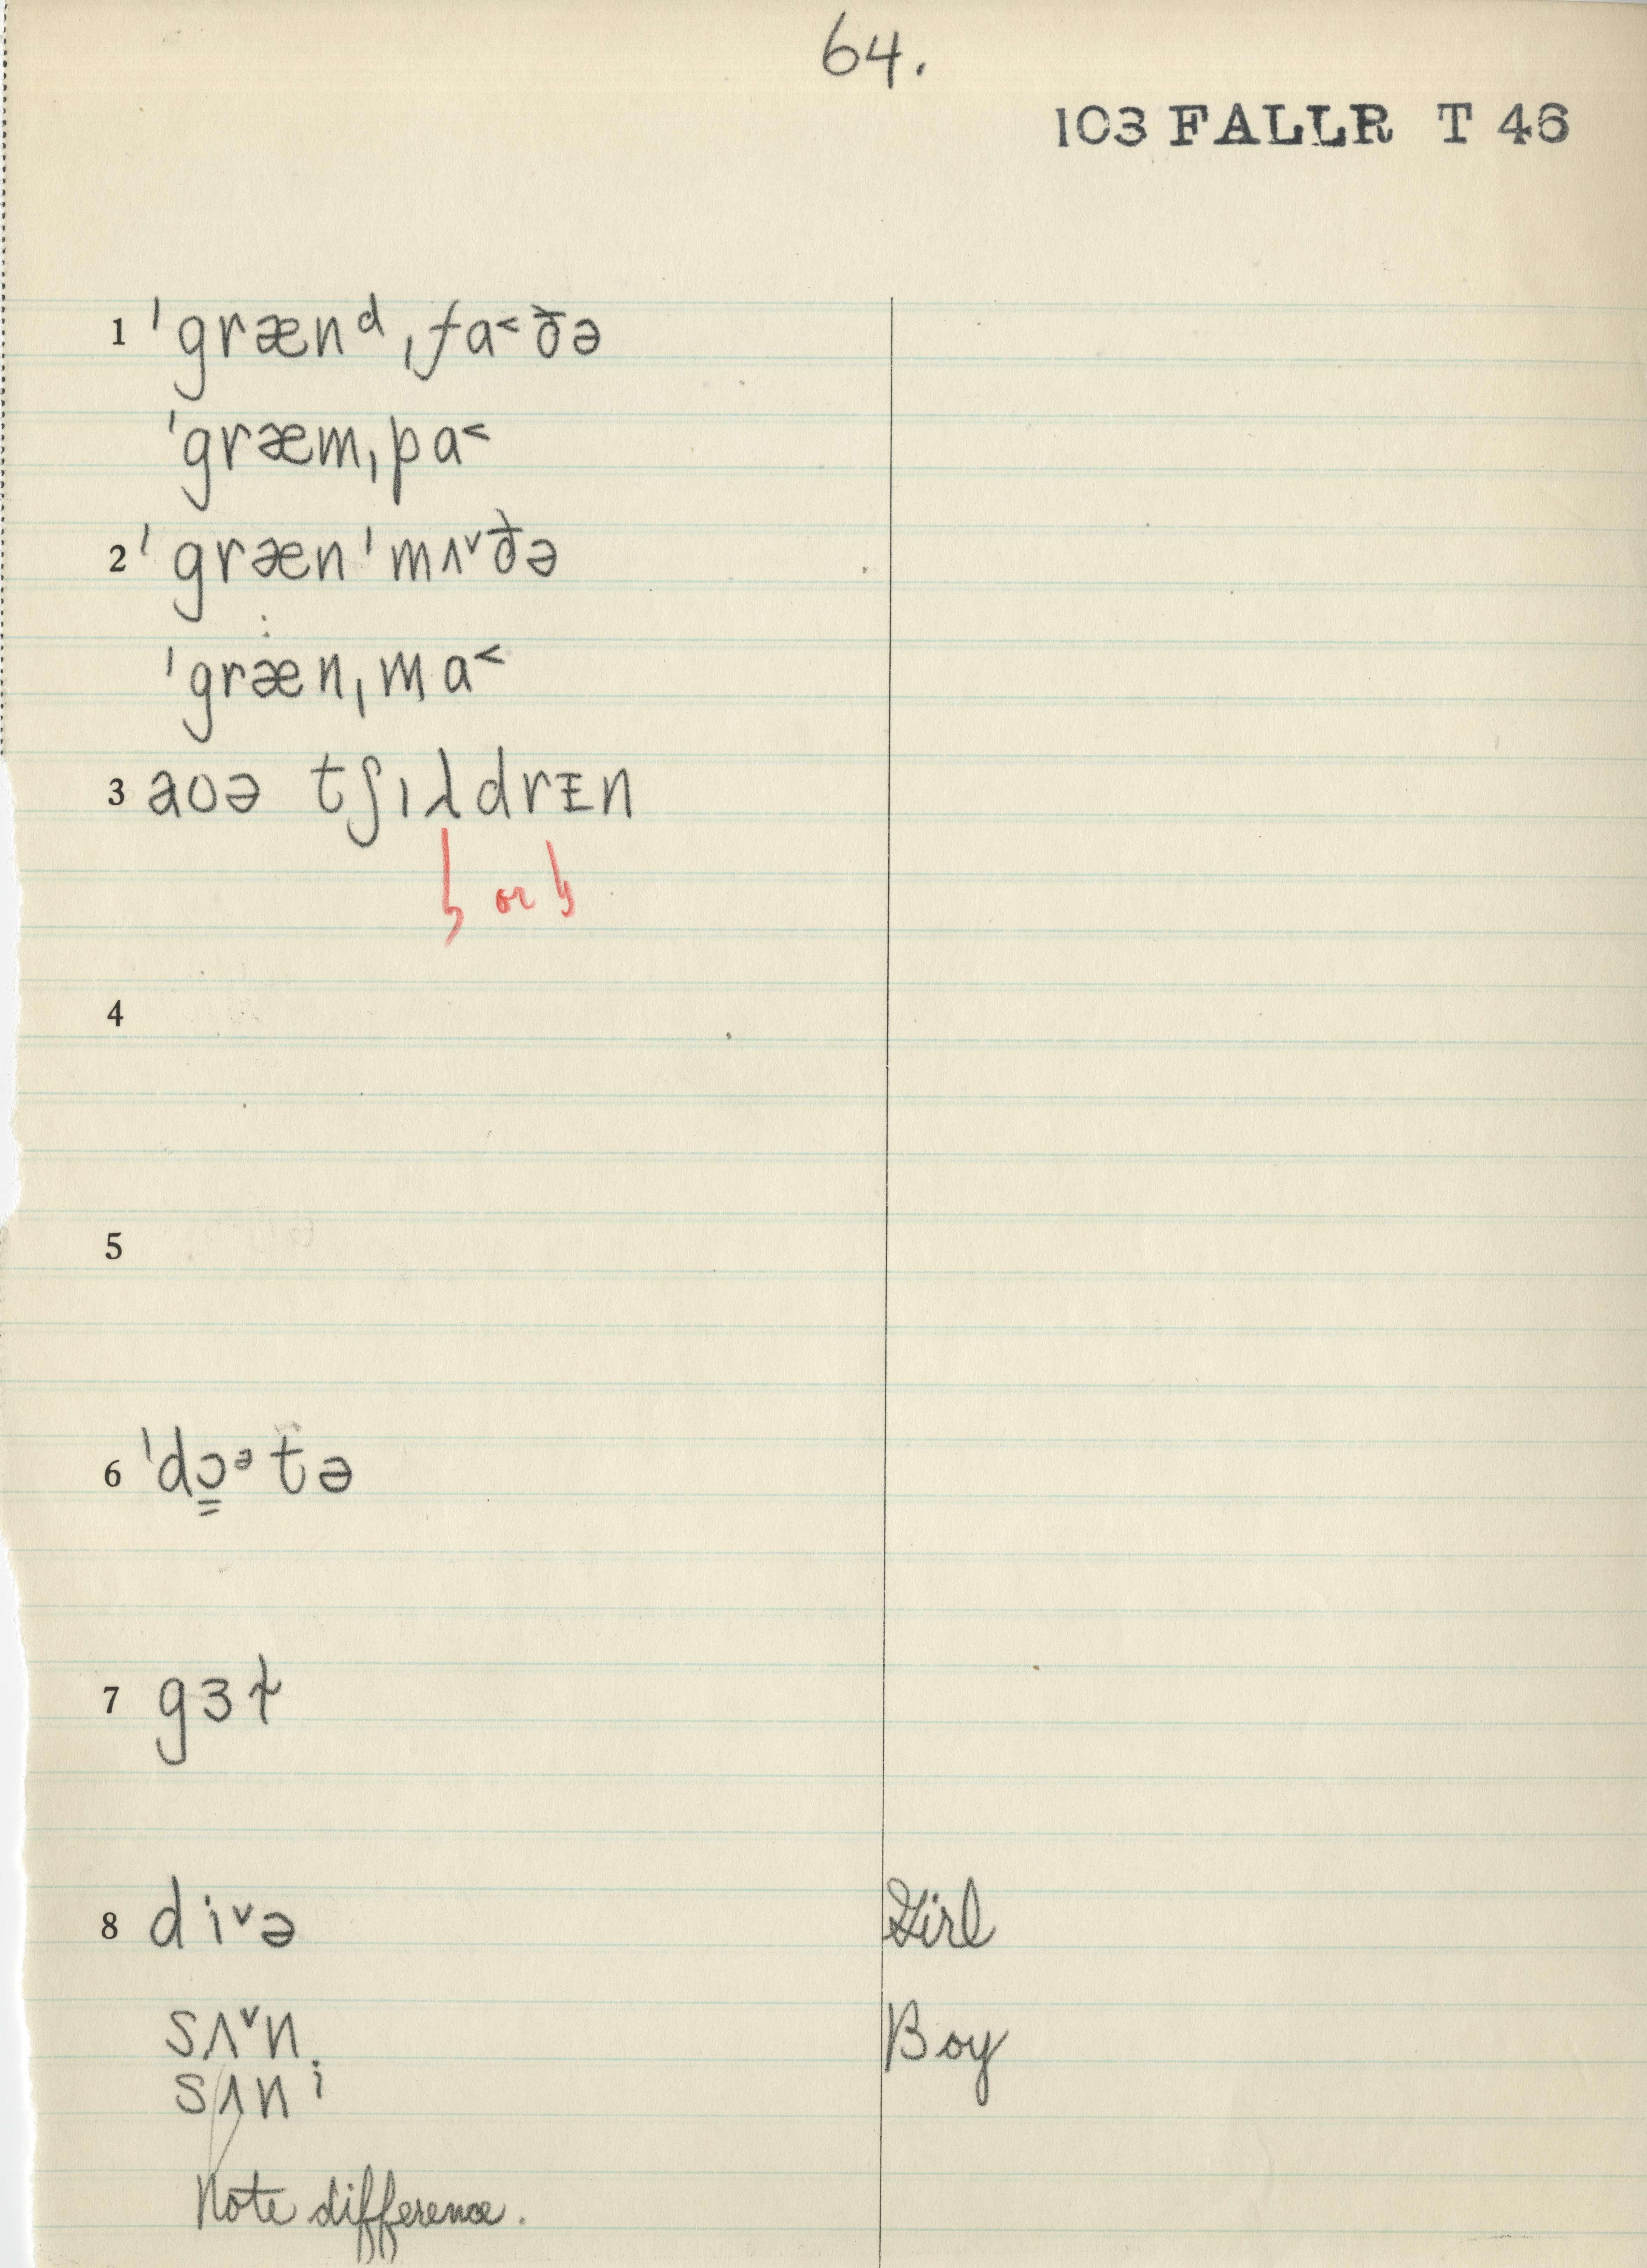 64.
103 FALLR T 46
1 ˈgrænᵈˌfa˂ðə
ˈgræmˌpa˂
2 ˈgrænˈmʌ˅ðə
ˈgrænˌma˂
3 aʊə tʃɪλdrᵻn
or
4
5
6 ˈdɔ̳ᵊtə
7 gɜɫ
8 di˅ə Girl
sʌ˅n Boy
sʌni
Note difference.